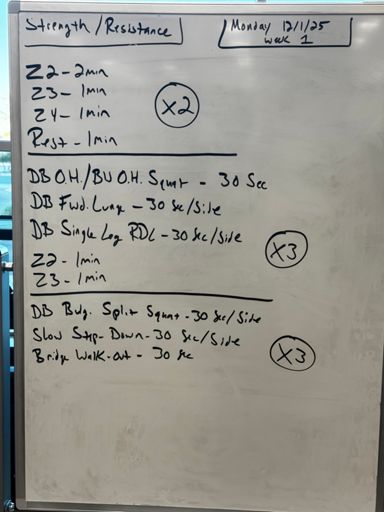 Strength/Resistance
Monday 12/1/25
Week 1
Z2 - 2min
Z3 - 1min
Z4 - 1min
Rest - 1min
X2
DB O.H./BU O.H. Squat - 30 Sec
DB Fwd. Lunge - 30 Sec/Side
DB Single Leg RDL - 30 Sec/Side
Z2 - 1min
Z3 - 1min
X3
DB Bulg. Split Squat - 30 Sec/Side
Slow Step-Down - 30 Sec/Side
Bridge Walk-out - 30 Sec
X3